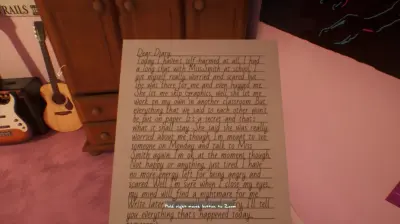 RAILS
Dear Diary,
Today I haven't self-harmed at all, I had
a long chat with Miss Smith at school, I
got myself really worried and scared but
she was there for me and even hugged me.
She let me skip Graphics, well, she let me
work on my own in another classroom. But
everything that we said to each other won't
be put on paper. It's a secret and that's
what it shall stay. She said she was really
worried about me though, I'm meant to see
someone on Monday and talk to Miss
Smith again. I'm ok at the moment, though.
Not happy or anything, just tired. I have
no more energy left for being angry and
scared. Well I'm sure when I close my eyes,
my mind will find a nightmare for me.
Write later I'll tell
you everything that's happened today.
Hold right mouse button to Zoom